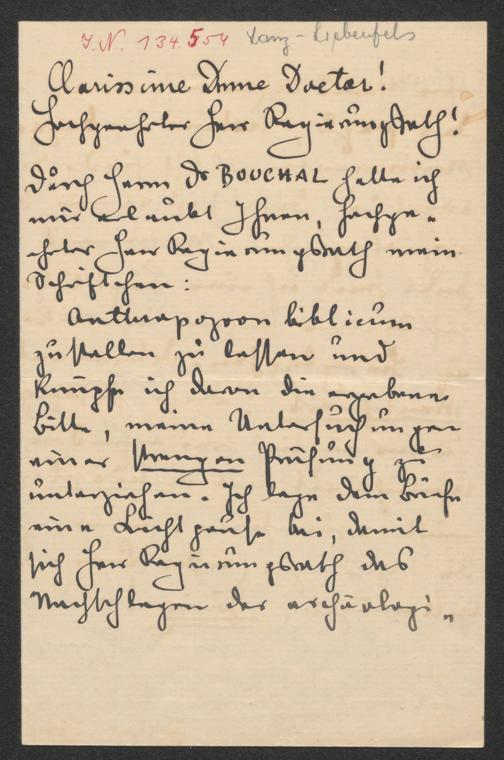 J. N. 134.554 Lanz-Liebenfels
Clarissime Dnne Doctor!
Hochgeehrter Herr Regierungsrath!
Durch Herrn Dr BOUCHAL hatte ich
mir erlaubt Ihnen, hochge-
ehrter Herr Regierungsrath mein
Schriftchen:
Anthropozoon biblicum
zustellen zu lassen und
knüpfe ich daran die ergebene
Bitte, meine Untersuchungen
einer strengen Prüfung zu
unterziehen. Ich lege dem Buche
eine Lichtpause bei, damit
sich Herr Regierungsrath das
Nachschlagen der archäologi-